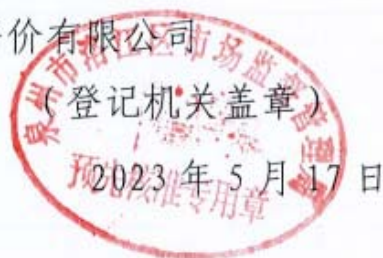 价有限公司
（登记机关盖章）
2023年5月17日
泉州市洛江区市场监督管理局
预先核准专用章